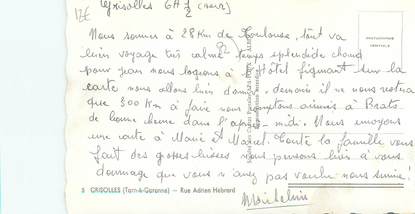 12€
Grisolles 6H ½ (soir)
Nous sommes à 28 Km de Toulouse, tout va
bien voyage très calme temps splendide chaud
pour jean nous logeons à l'Hôtel figurant sur la
carte nous allons bien dormir, demain il ne nous restera
que 300 Km à faire nous comptons arriver à Prats
de bonne heure dans l'après-midi. Nous envoyons
une carte à Marie et Marcel. Toute la famille vous
fait des grosses bises nous pensons bien à vous
dommage que vous n'ayez pas voulu nous suivre!
3 GRISOLLES (Tarn-&-Garonne) — Rue Adrien Hébrard
Madeleine